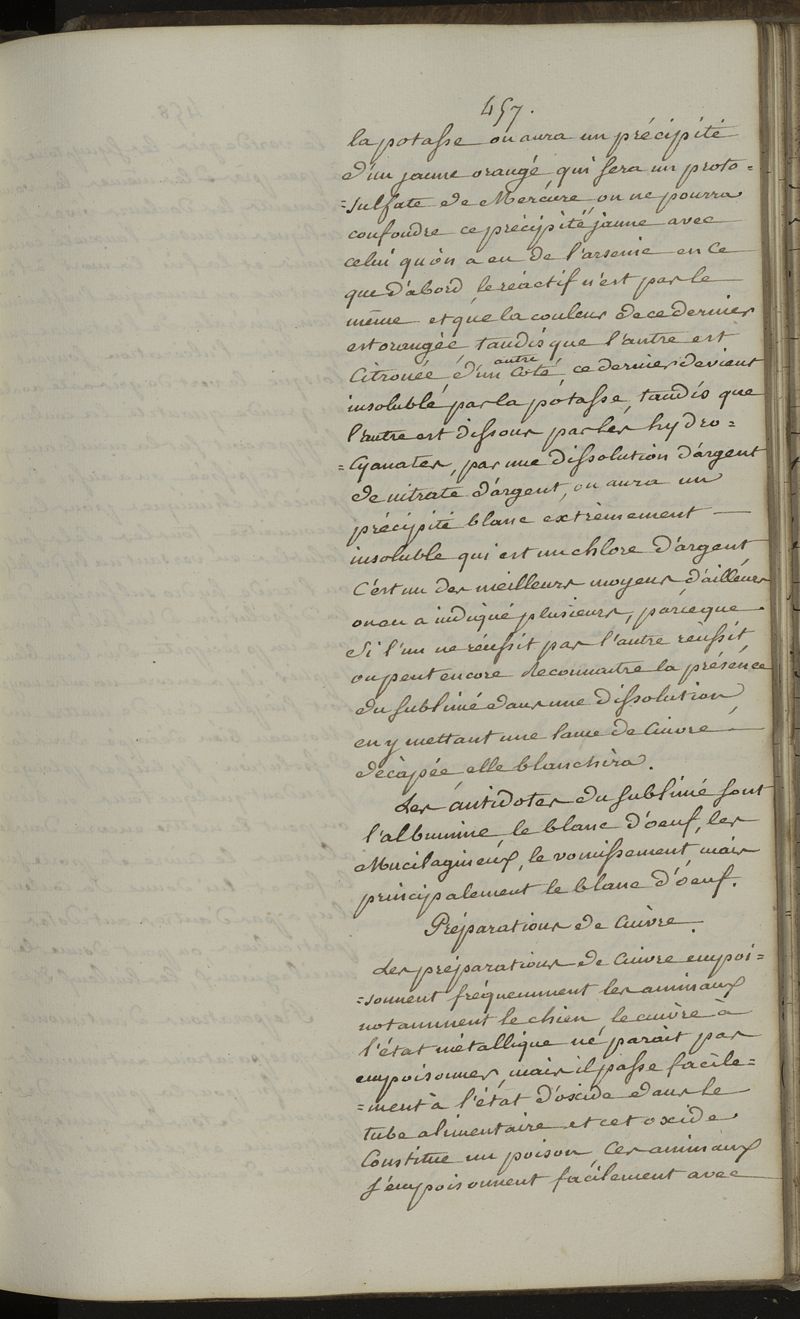 457.
la potasse on aura un précipité
d'un jaune orangé, qui sera un proto=
=sulfate de Mercure, on ne pourra
confondre ce précipité jaune avec
celui qu'on a eu de l'arsenic en ce
que d'abord le réactif n'est pas le
même et que la couleur de ce dernier
est orangée tandis que l'autre est
Citronée d'un autre coté, ce dernier devient
insoluble par la potasse, tandis que
l'autre est dissous par les hydro=
=Cyanates, par une dissolution d'argent
de nitrate d'argent, on aura un
précipité blanc extrèmement —
insoluble qui est un chlore d'argent
C'est un des meilleurs moyens d'ailleurs
on en a indiqué plusieurs, parceque
Si l'un ne réussit pas l'autre réussit
on peut encore Reconnaitre la présence
du sublimé dans une dissolution
en y mettant une lame de Cuivre —
décapée, elle blanchira.
Les antidotes du sublimé sont
l'albumine, le blanc d'oeuf, les
Mucilagineux, le vomissement, mais
principalement le blanc d'oeuf.
Préparations de Cuivre.
Les préparations de Cuivre empoi=
=sonnent fréquemment les animaux
notamment le chien, le cuivre à
l'état métallique ne parait pas
empoisonner, mais il passe facile=
=ment à l'état d'oxide dans le
tube alimentaire et cet oxide
Constitue un poison, Ces animaux
s'empoisonnent facilement avec